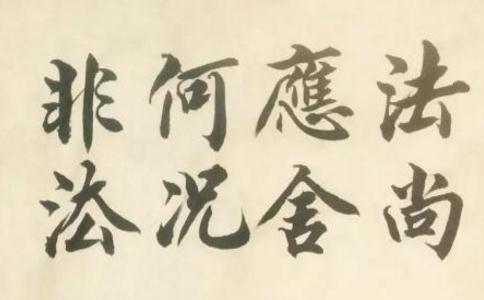 法尚
應舍
何況
非法